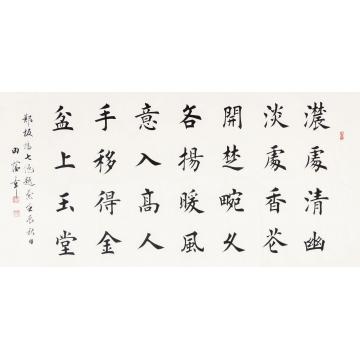 濃處清幽
淡處香花
開楚畹久
名揚暖風
意入高人
手移得金
盆上玉堂
鄭板橋七絕題蘭壬辰秋日
田蘊章